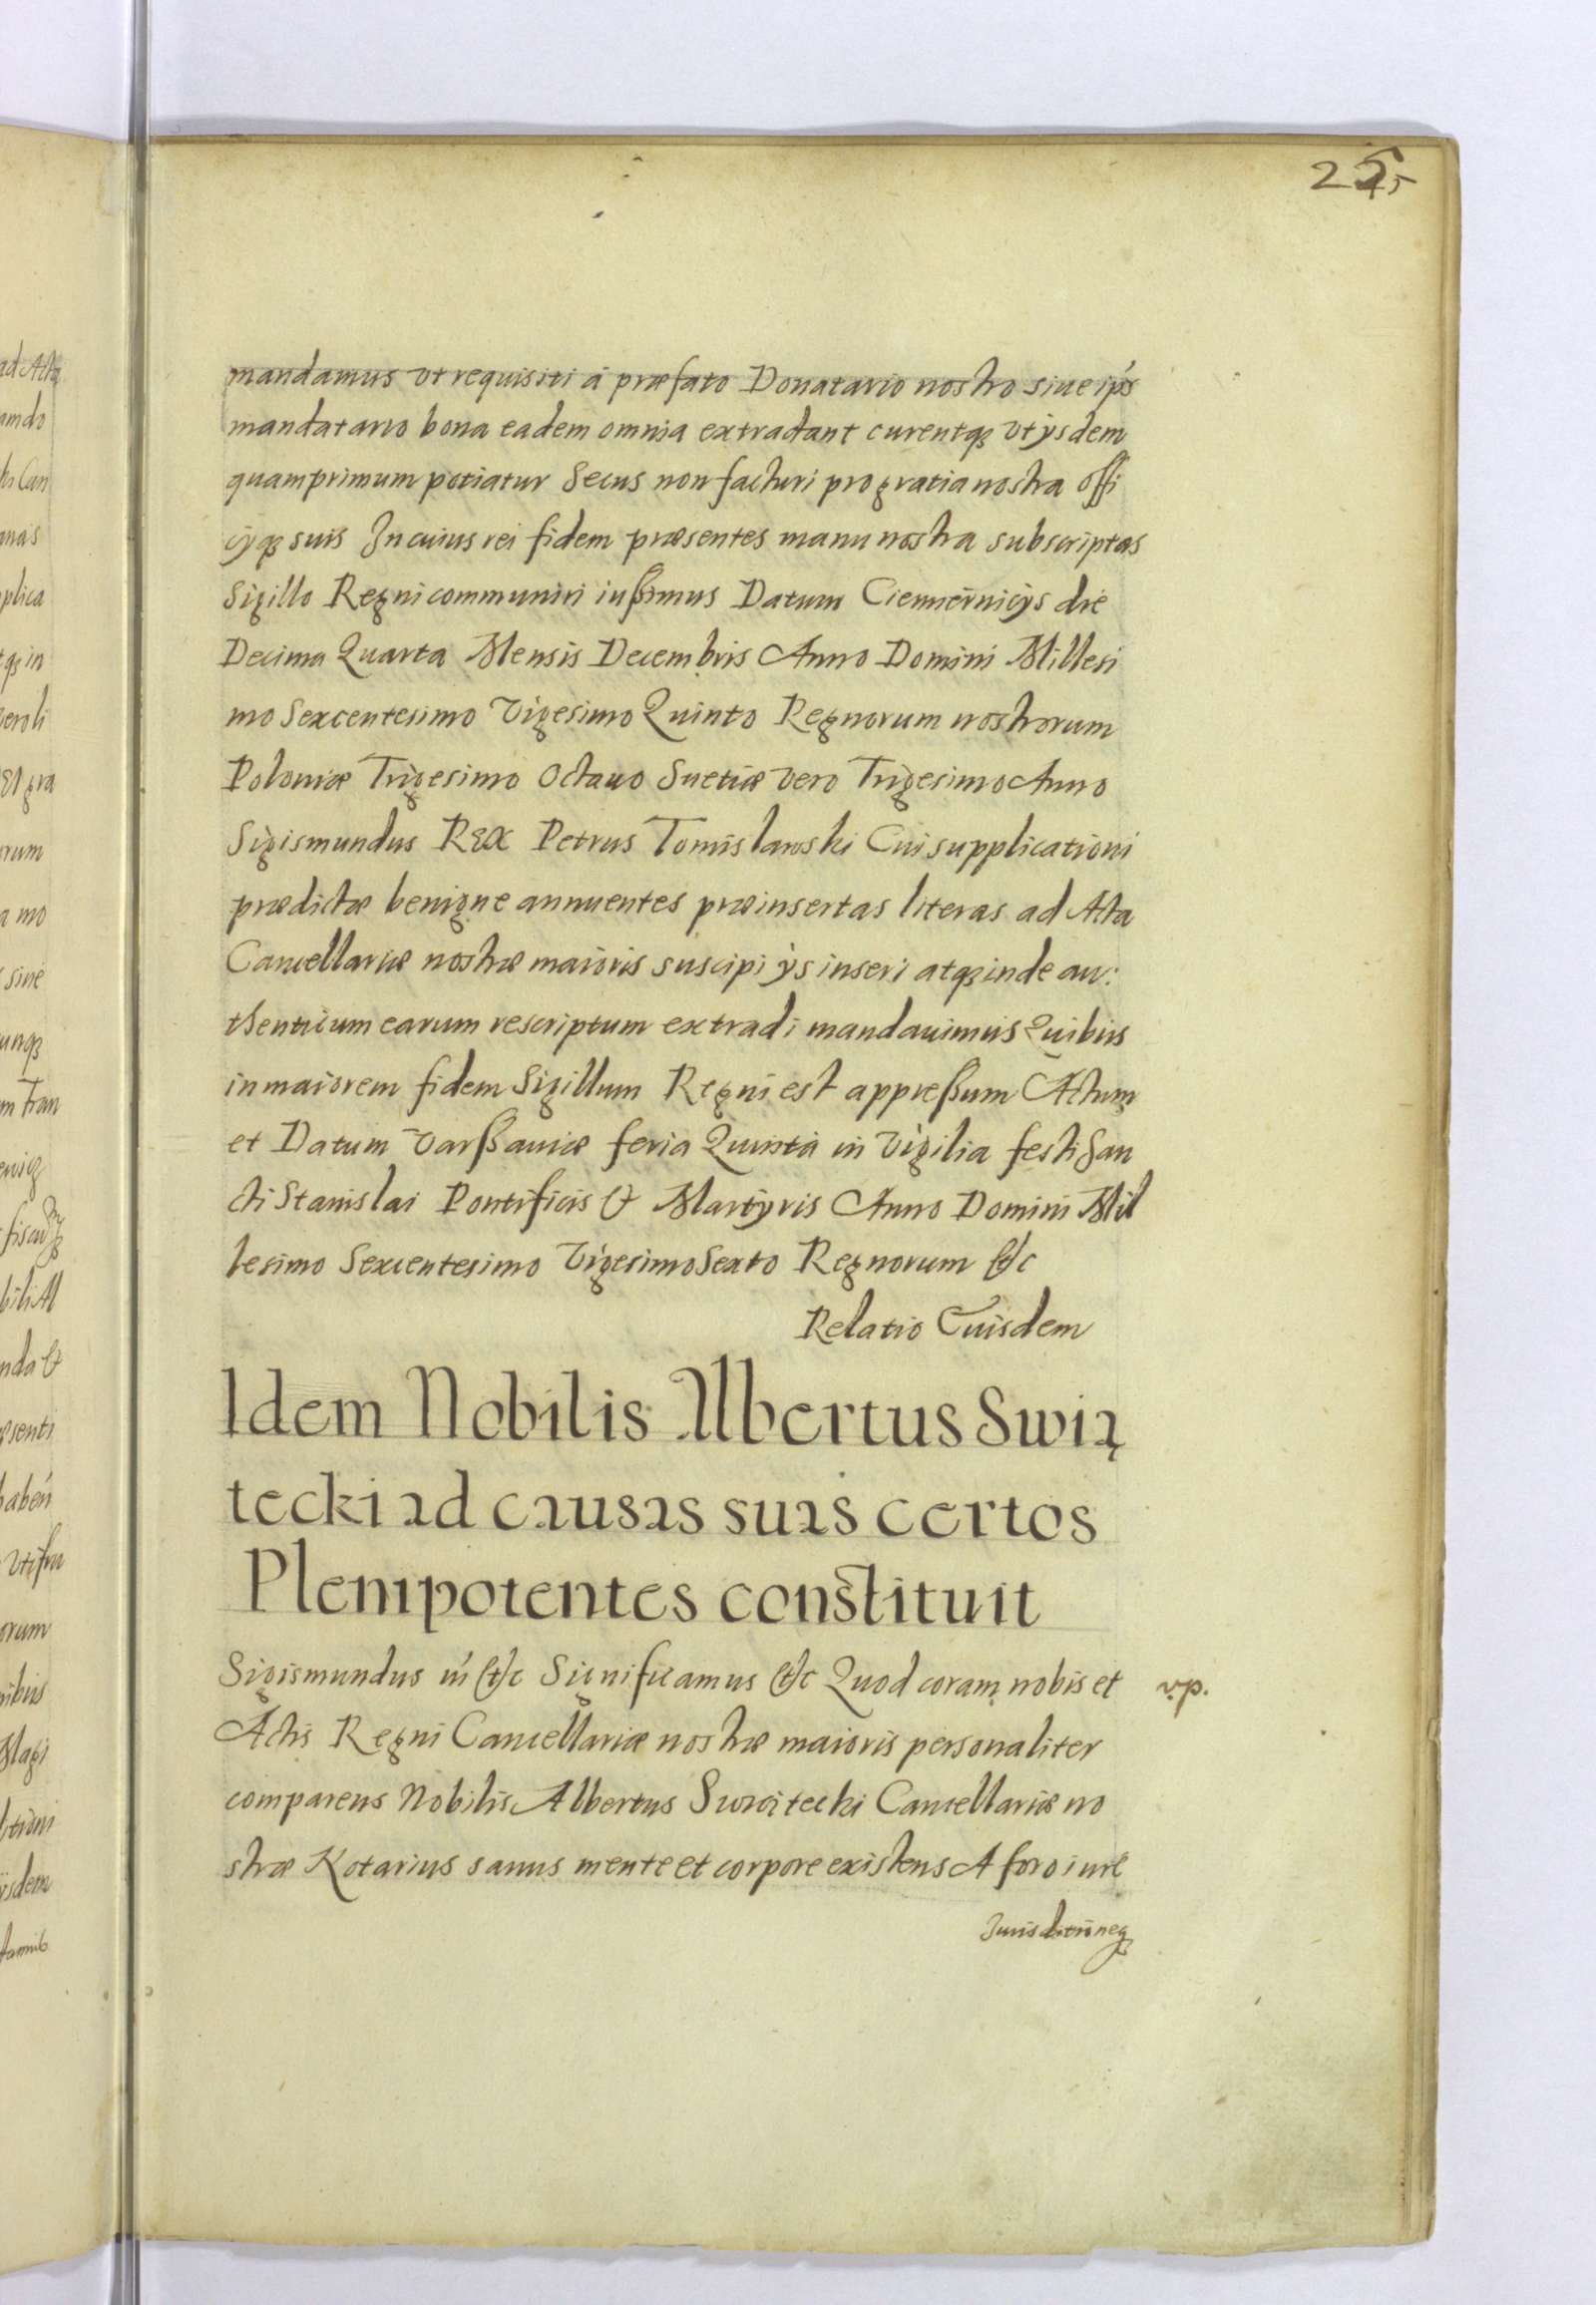 mandamus vt requisiti á præfato Donatario nostro siue ips
mandatario bona eadem omnia extradant curentq₃ vt ijsdem
quamprimum potiatur Secus non facturi pro gratia nostra offi
cijq₃ suis In cuius rei fidem præsentes manu nostra subscriptas
Sigillo Regni communiri iußimus Datum die
Decima Quarta Mensis Decembris Anno Domini Millesi
mo Sexcentesimo Vigesimo Quinto Regnorum nostrorum
Poloniæ Trigesimo Octauo Suetiæ vero Trigesimo Anno
Sigismundus Rex Petrus Tomislawski Cui supplicationi
prædictæ benigne annuentes præinsertas literas ad Acta
Cancellariæ nostræ maioris suscipi ijs inseri atq₃ inde au:
thenticum earum rescriptum extradi mandauimus Quibus
in maiorem fidem Sigillum Regni est appreßum Actum
et Datum Varßauiæ feria Quinta in Vigilia festi San
cti Stanislai Pontificis & Martyris Anno Domini Mil
lesimo Sexcentesimo Vigesimo Sexto Regnorum &c
Relatio Eiusdem
Idem Nobilis Albertus Swią
tecki ad causas suas certos
Plenipotentes constituit
Sigismundus III &c Significamus &c Quod coram nobis et
v.p.
Actis Regni Cancellariæ nostræ maioris personaliter
comparens Nobilis Albertus Swiątecki Cancellariæ no
stræ Notarius sanus mente et corpore existens A foro iure
Jurisdictioneq₃